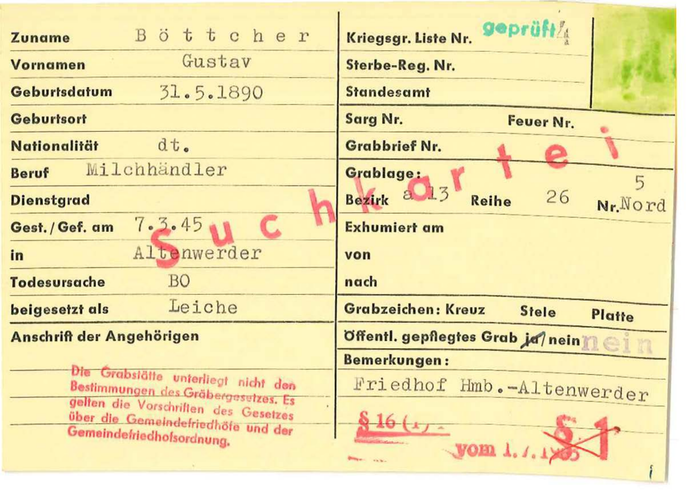 Zuname Böttcher
Vornamen Gustav
Geburtsdatum 31.5.1890
Geburtsort
Nationalität dt.
Beruf Milchhändler
Dienstgrad
Gest./Gef. am 7.3.45
in Altenwerder
Todesursache BO
beigesetzt als Leiche
Anschrift der Angehörigen
Die Grabstätte unterliegt nicht den
Bestimmungen des Gräbergesetzes. Es
gelten die Vorschriften des Gesetzes
über die Gemeindefriedhöfe und der
Gemeindefriedhofsordnung.
Suchkartei
Kriegsgr. Liste Nr. geprüft 4
Sterbe-Reg. Nr.
Standesamt
Sarg Nr. Feuer Nr.
Grabbrief Nr.
Grablage: 5
Bezirk a 13 Reihe 26 Nr. Nord
Exhumiert am
von
nach
Grabzeichen: Kreuz Stele Platte
Öffentl. gepflegtes Grab ja/nein nein
Bemerkungen:
Friedhof Hmb.-Altenwerder
§ 16 (1)
§ 1
vom 1.7.1965